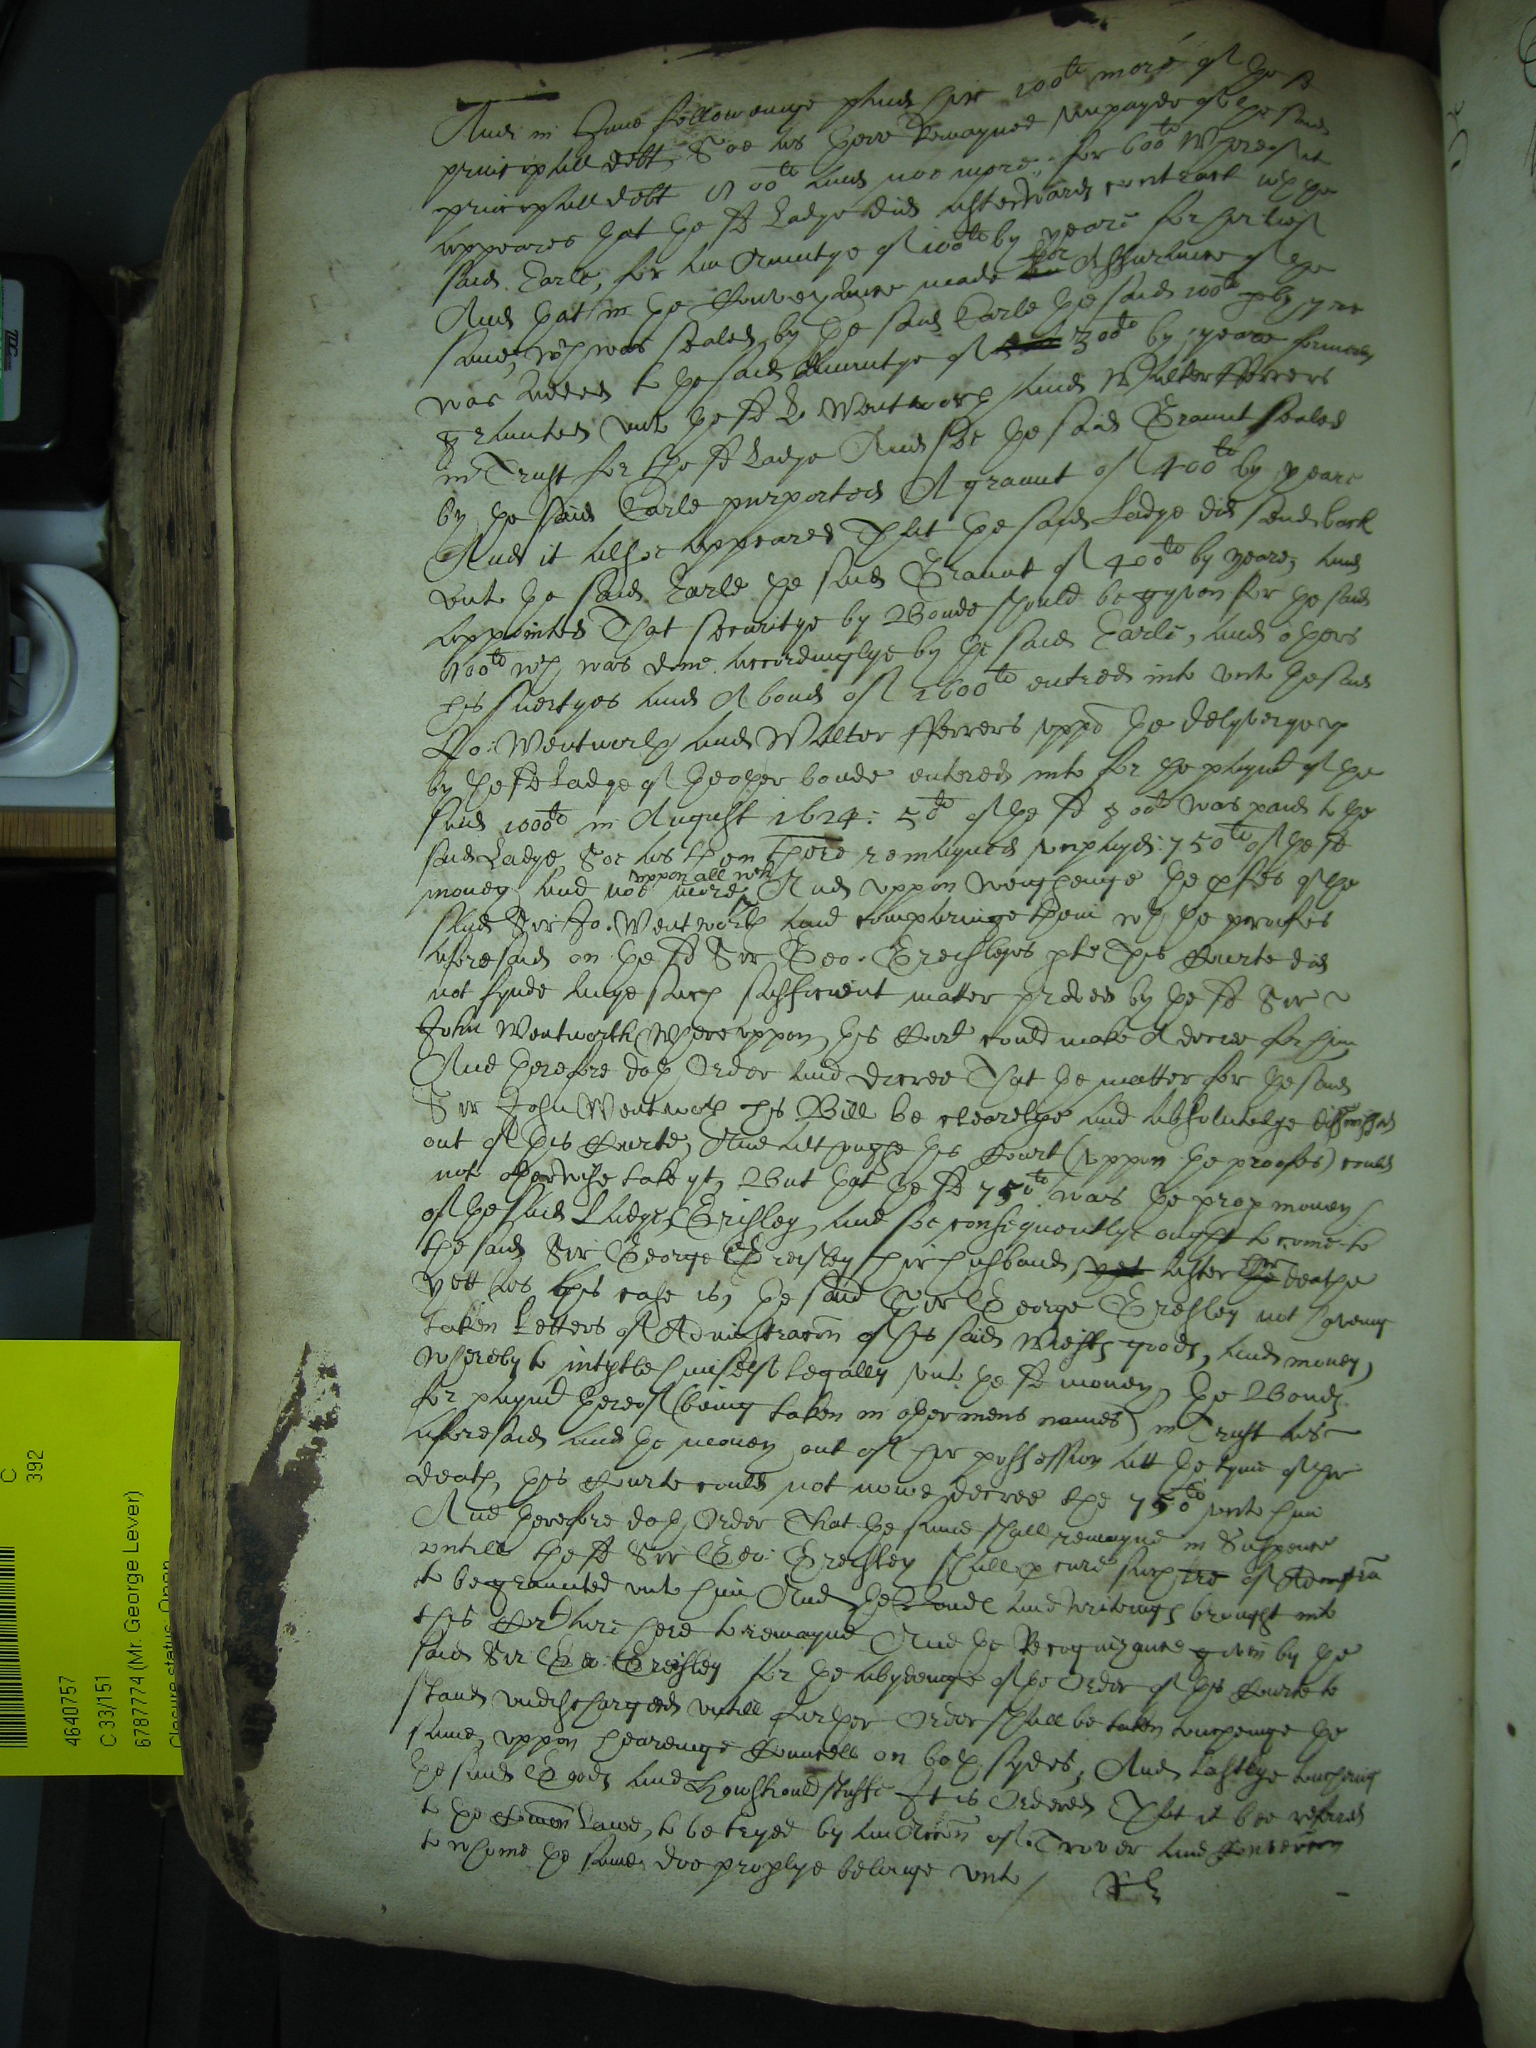 And in June followeinge paid her 100li more of the sd
principall debt, Soe as there Remayned unpayde of the said
principall debt 800li and noe more for 600li whereof it
appeares that the sd Ladye did afterwards contract wth the
said Earle, for an Annuitye of 100li by yeare for her lief
And that in the Conveyance made for Assurance of the
same, wch was sealed by the said Earle the said 100li p
was added to the said Annuitye of 300li by yeare formerly
graunted unto the sd Jo Wentworth and Walter Fferrers
in Trust for the sd Ladye And soe the said Graunt sealed
by the said Earle purported A graunt of 400li by yeare
And it alsoe appeared That the said Ladye did send back
unto the said Earle the said Graunt of 400li by yeare, and
appointed That securitye by Bonde should be gyven for the said
800li wch was done accordinglye by the said Earle, and others
his suertyes and A bond of 1600li entred into unto the said
Jo: Wentworth and Walter Fferrers uppon the delyverye up
by the sd Ladye of the other bonde entered into for the paymt of the
said 1000li in August 1624: 50li of the sd 800li was paid to the
said Ladye, Soe as then there remayned unpayd: 750li of the sd
money and noe more, uppon all wch And uppon weigheinge the pfes of the
said Sir Jo: Wentworth and compareinge them wth the proofes
aforesaid on the sd Sir Geo: Greisleyes pte This Courte did
not fynde anye such sufficient matter proved by the sd Sir
John Wentworth whereuppon this Court could make A decree for him
And therefore doth Order and decree That the matter for the said
Sir John Wentworth his Bill be clearelye and absolutelye dismissed
out of this Courte, And althoughe this Court (uppon the proofes) could
not otherwise take yt, But that the sd 750li was the prop money
of the said Ladye Grisley, and soe consequentlye ought to come to
the said Sir George Greisley her husband, yet after her deathe
yett as this case is, the said Sir George Gresley not haveing
taken Letters of Administracon of his said wiefes goods, and money,
whereby to intytle himself legally unto the sd money, the Bonds
for paymt thereof (being taken in other mens names) in Trust as
aforesaid and the money out of her possession att the tyme of her
death, this Courte could not nowe decree the 750li unto him
And therefore doth Order That the same shall remayne in Suspence
untill the sd Sir Geo: Greisley shall pcure such lres of Admstracon
to be graunted unto him And the Bonds and writeings brought into
this Cort are here to remayne And the Recognizance given by the
said Sir Geo: Greisley for the abydeinge of the Order of this Courte to
stand undischarged untill further Order shall be taken toucheinge the
same, uppon heareinge Councell on both sydes, And lastlye touching
the said Goods and Howshould stuffe It is Ordered That it bee referred
to the Comon Lawe, to be tryed by an Accon of Trover and Conversion
to whome the same doe proplye belonge unto /
C
392
4640757
C 33/151
6787774 (Mr. George Lever)
Closure status: Open